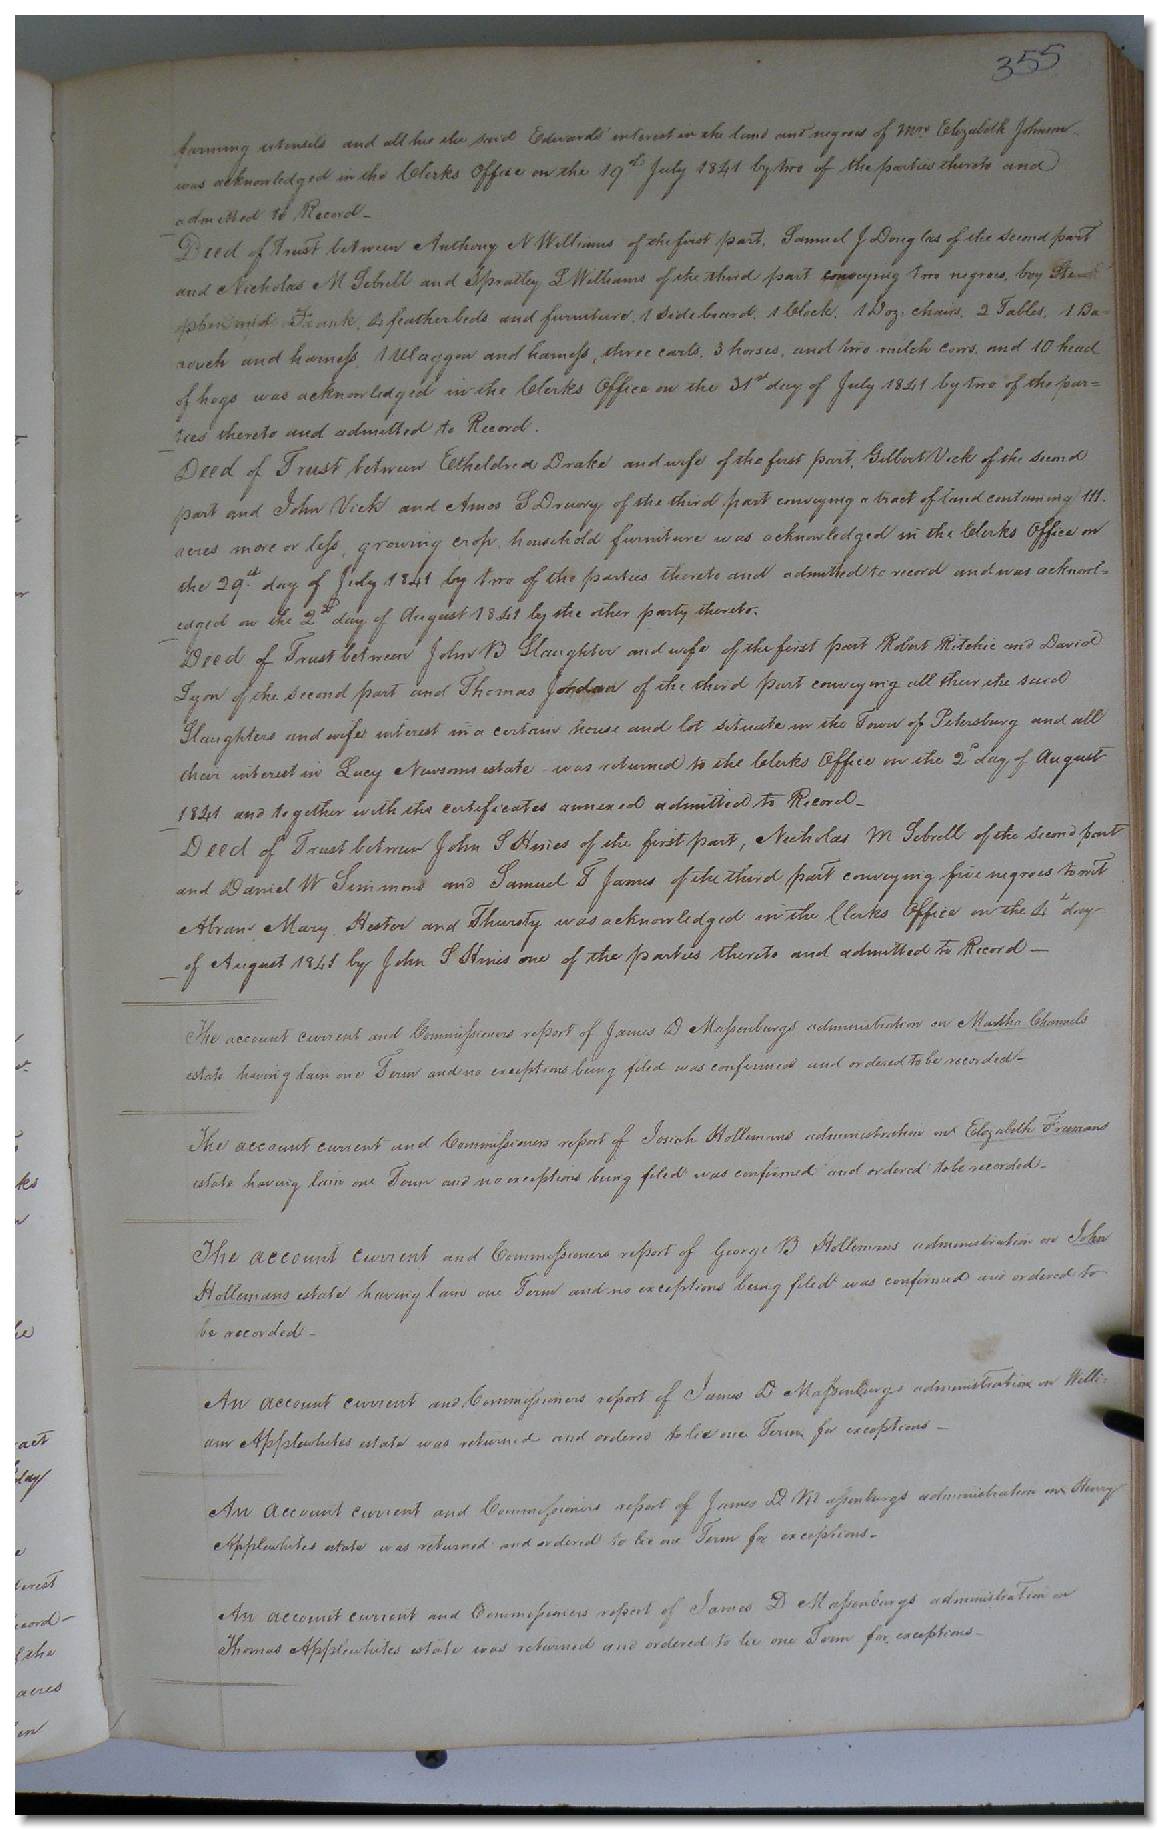 355
farming utensils and all his the said Edwards interest in the land and negroes of Mrs Elizabeth Johnson
was acknowledged in the Clerks Office on the 19th July 1841 by two of the parties thereto and
admitted to Record_
Deed of Trust between Anthony N Williams of the first part, Samuel J Douglas of the second part
and Nicholas M Sebrell and Spratley L Williams of the third part conveying two negroes, boy
and Frank, 4 featherbeds and furniture, 1 sideboard, 1 Clock, 1 Doz. chairs, 2 Tables, 1 Ba=
rouch and harness, 1 Waggon and harness, three carts, 3 horses, and two milch cows, and 10 head
of hogs was acknowledged in the Clerks Office on the 31st day of July 1841 by two of the par=
ties thereto and admitted to Record.
Deed of Trust between Etheldred Drake and wife of the first part, Gilbert Vick of the second
part and John Vick and Amos S Drewry of the third part conveying a tract of land containing 111.
acres more or less, growing crop, household furniture was acknowledged in the Clerks Office on
the 29th day of July 1841 by two of the parties thereto and admitted to record and was acknowl=
edged on the 2nd day of August 1841 by the other party thereto.
Deed of Trust between John B Slaughter and wife of the first part Robert Ritchie and David
Lyon of the second part and Thomas Jordan of the third part conveying all their the said
Slaughters and wifes interest in a certain house and lot situate in the Town of Petersburg and all
their interest in Lucy Newsoms estate was returned to the Clerks Office on the 2d day of August
1841 and together with the certificates annexed admitted to Record_
Deed of Trust between John S Hines of the first part, Nicholas M Sebrell of the second part
and Daniel W Simmons and Samuel T James of the third part conveying five negroes towit
Abram, Mary, Hester and Thursty was acknowledged in the Clerks Office on the 4th day
of August 1841 by John S Hines one of the parties thereto and admitted to Record_
The account current and Commissioners report of James D Massenburgs administration on Martha Channels
estate having lain one Term and no exceptions being filed was confirmed and ordered to be recorded_
The account current and Commissioners report of Josiah Hollemans administration on Elizabeth Freemans
estate having lain one Term and no exceptions being filed was confirmed and ordered to be recorded_
The account current and Commissioners report of George B Hollemans administration on John
Hollemans estate having lain one Term and no exceptions being filed was confirmed and ordered to
be recorded_
An account current and Commissioners report of James D Massenburgs administration on Willi=
am Applewhites estate was returned and ordered to lie one Term for exceptions_
An account current and Commissioners report of James D Massenburgs administration on Henry
Applewhites estate was returned and ordered to lie one Term for exceptions_
An account current and Commissioners report of James D Massenburgs administration on
Thomas Applewhites estate was returned and ordered to lie one Term for exceptions_